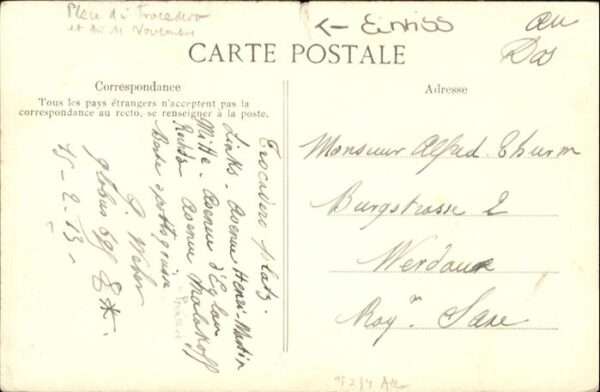 Place du Trocadero
et du 11 Novembre
← Einriss
au
Dos
CARTE POSTALE
Correspondance
Tous les pays étrangers n'acceptent pas la
correspondance au recto, se renseigner à la poste.
Adresse
Trocadero platz.
Links. Avenue Henri-Martin
Mitte. Avenue d'Eylau
Rechts Avenue Malakoff
Beste
A. Weber
15-2-13-
Monsieur Alfred Thurm
Burgstrasse 2
Werdau
Roy. Saxe